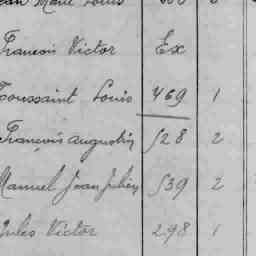 Jean Marie Louis
François Victor Ex
Toussaint Louis 469 1
François Augustin 528 2
Manuel Jean Julien 539 2
Jules Victor 298 1